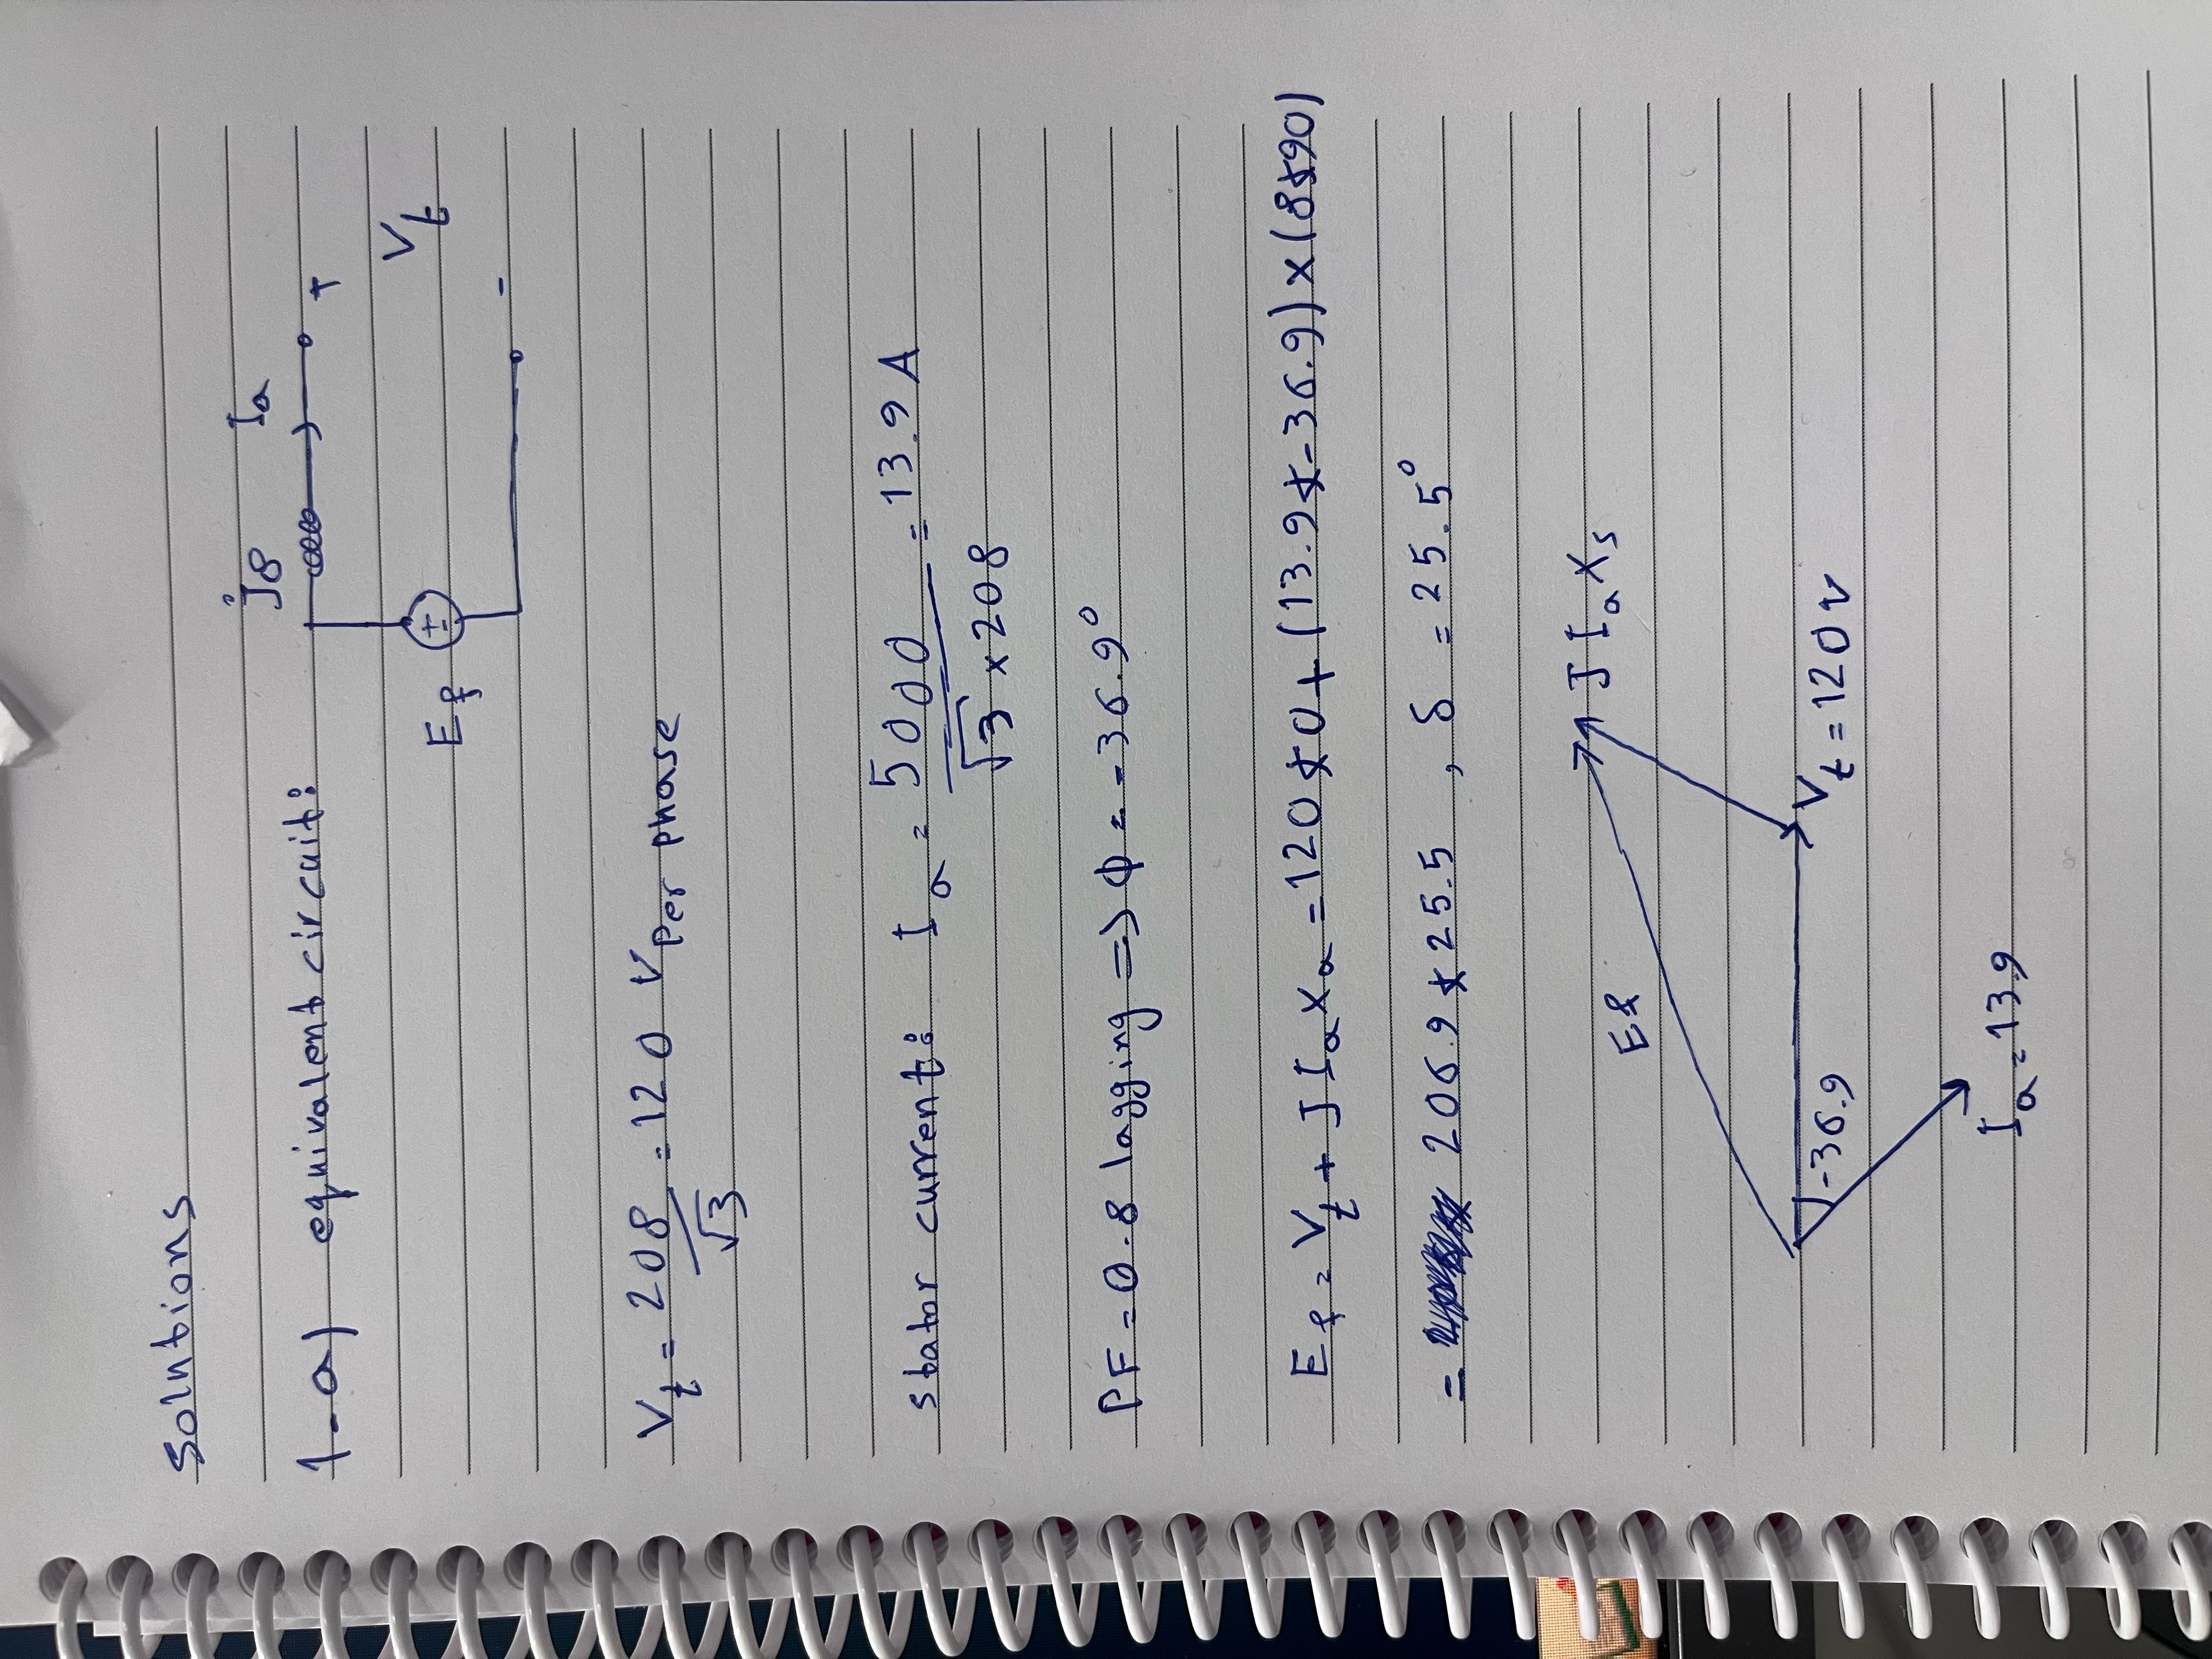 Solutions
j8 Ia
1-a) equivalent circuit:
+
Ef ± Vt
-
Vt = 208/√3 = 120 V Per phase
stator current: Ia = 5000/(√3 × 208) = 13.9 A
PF = 0.8 lagging => ϕ = -36.9°
Ef = Vt + J Ia Xa = 120∡0 + (13.9∡-36.9) × (8∡90)
= 206.9∡25.5 , δ = 25.5°
J Ia Xs
Ef
-36.9
Vt = 120 v
Ia = 13.9